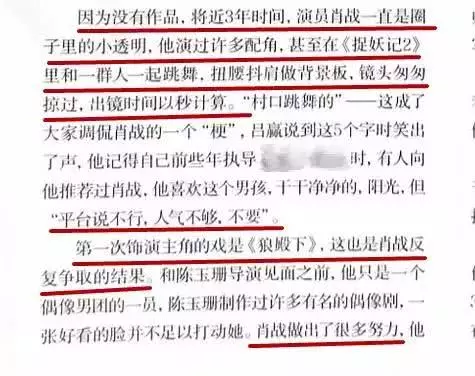 因为没有作品，将近3年时间，演员肖战一直是圈
子里的小透明，他演过许多配角，甚至在《捉妖记2》
里和一群人一起跳舞，扭腰抖肩做背景板，镜头匆匆
掠过，出镜时间以秒计算。“村口跳舞的”——这成了
大家调侃肖战的一个“梗”，吕赢说到这5个字时笑出
了声，他记得自己前些年执导 时，有人向
他推荐过肖战，他喜欢这个男孩，干干净净的，阳光，但
“平台说不行，人气不够，不要”。
第一次饰演主角的戏是《狼殿下》，这也是肖战反
复争取的结果。和陈玉珊导演见面之前，他只是一个
偶像男团的一员，陈玉珊制作过许多有名的偶像剧，一
张好看的脸并不足以打动她。肖战做出了很多努力，他